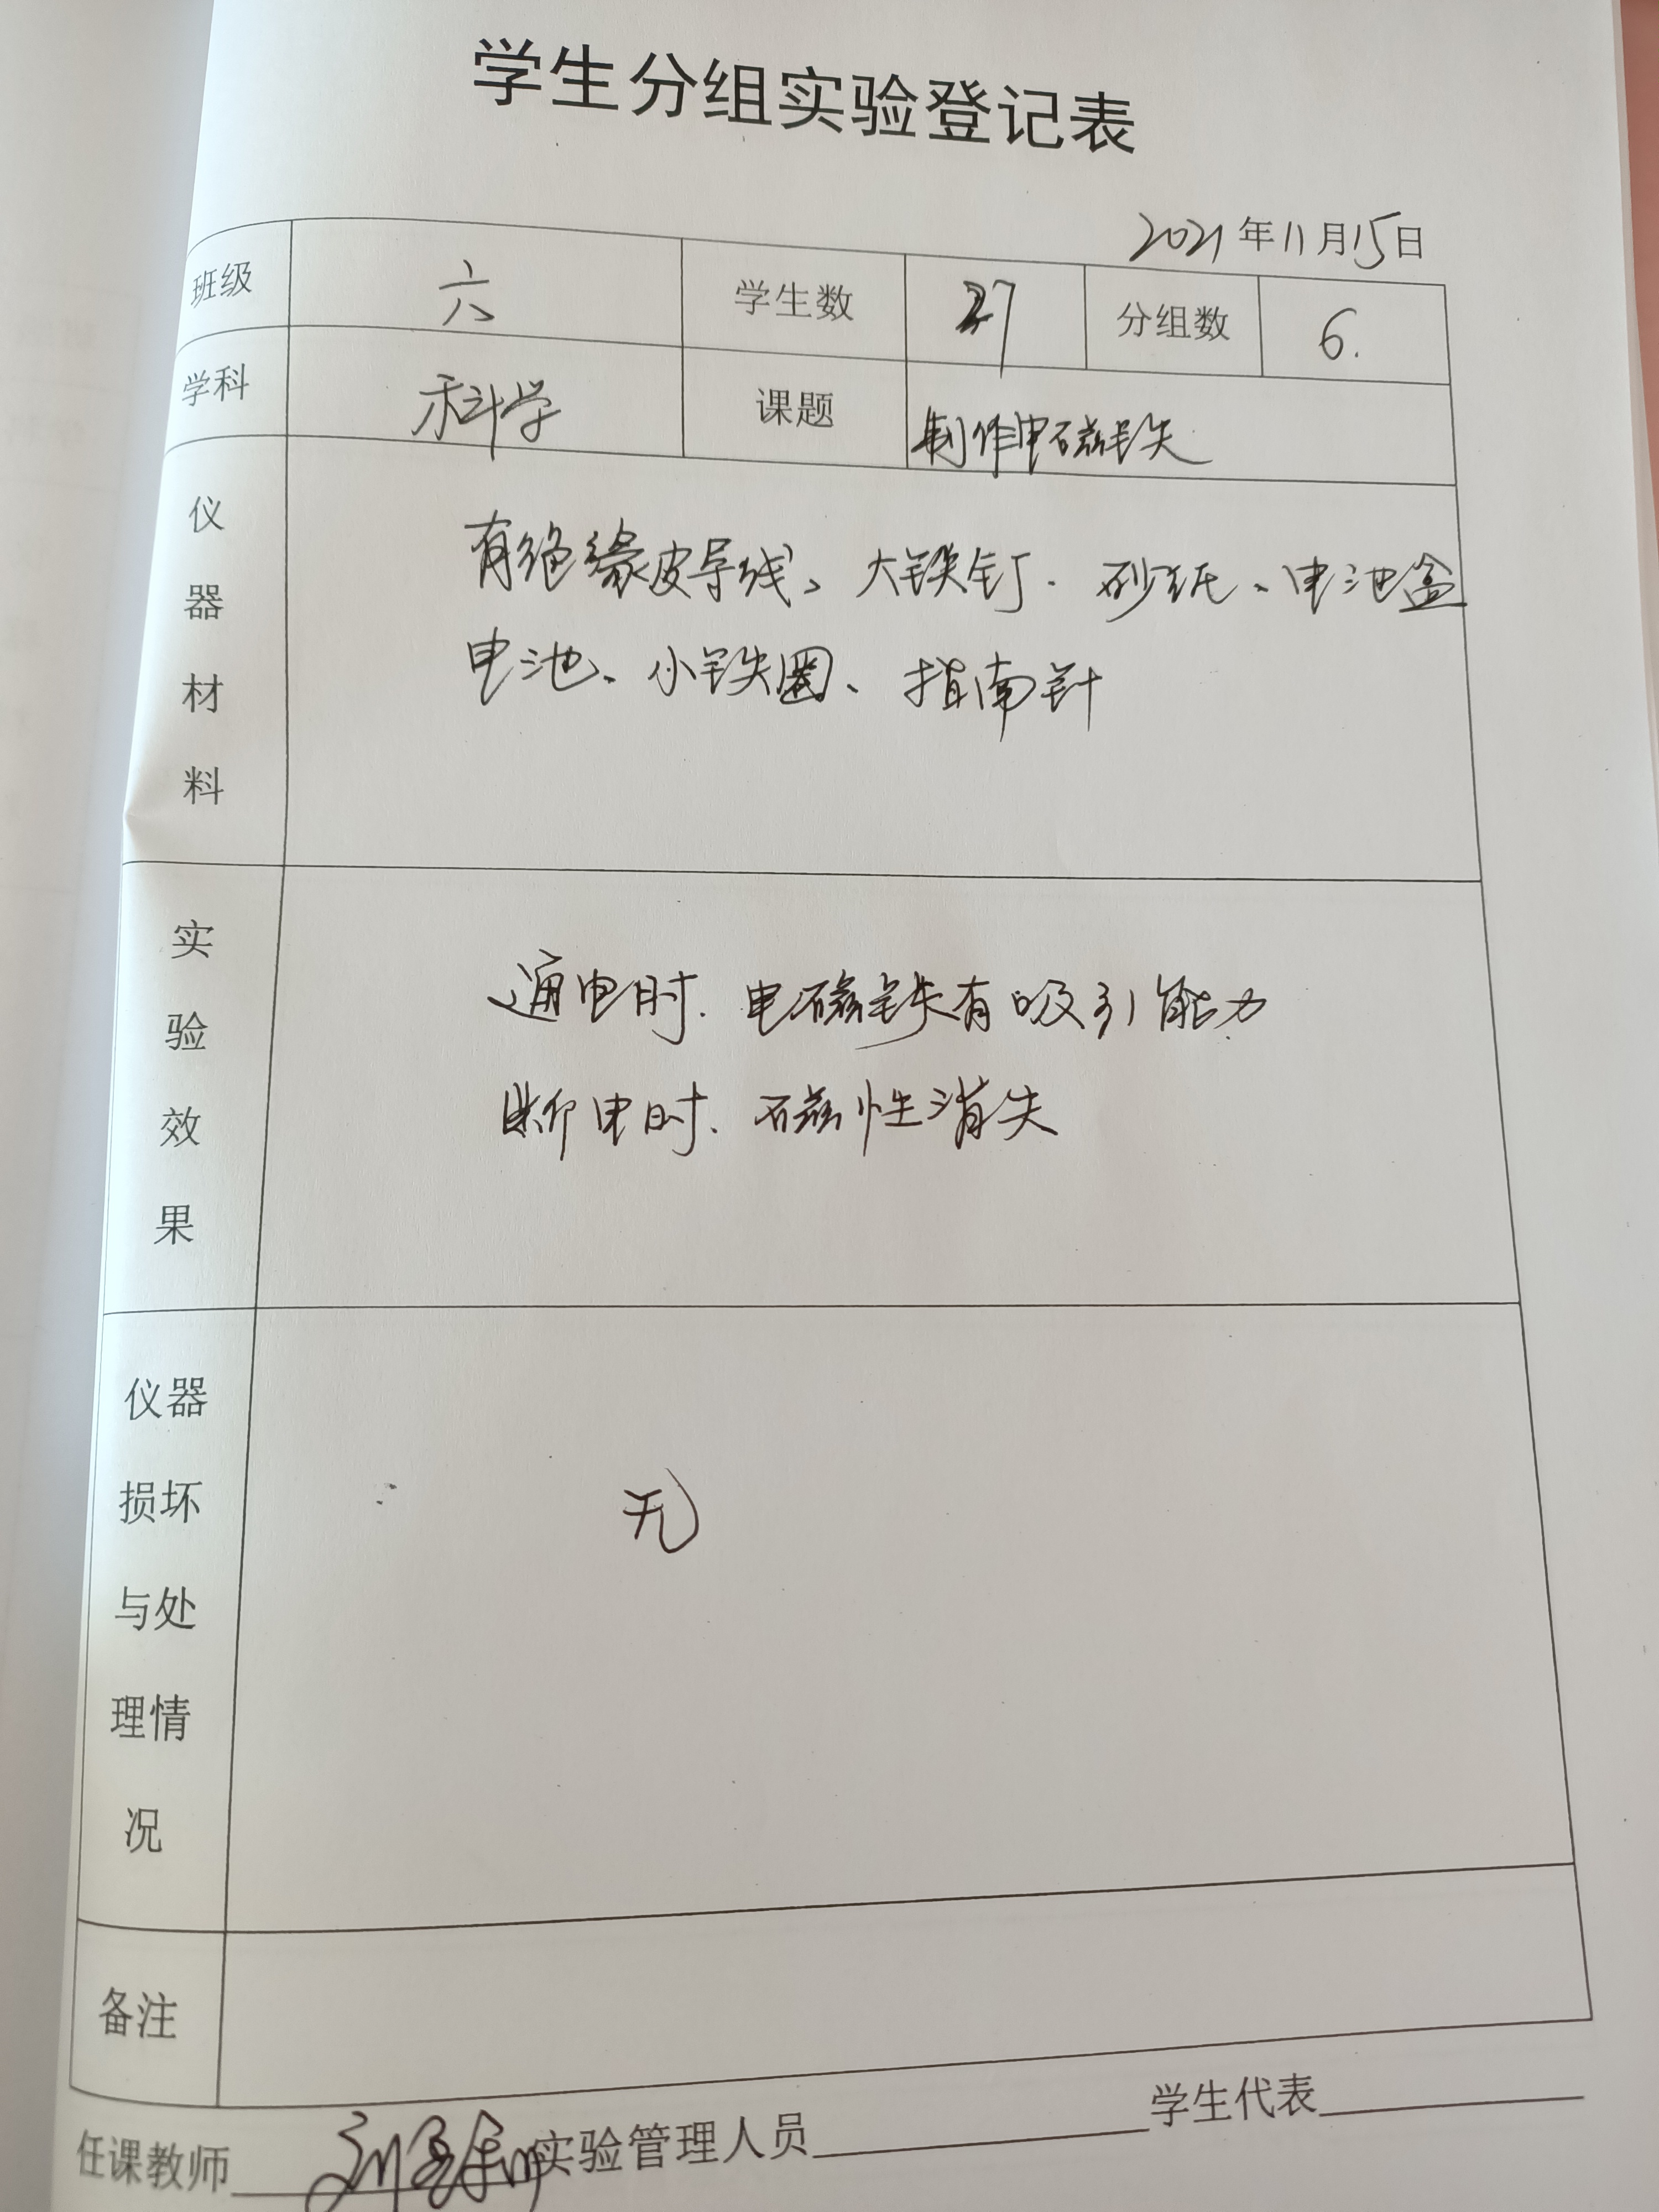 学生分组实验登记表
2021年11月15日
班级 六 学生数 27 分组数 6.
学科 科学 课题 制作电磁铁
仪器材料
有绝缘皮导线、大铁钉、砂纸、电池盒
电池、小铁圈、指南针
实验效果
通电时.电磁铁有吸引能力
断电时.磁性消失
仪器损坏与处理情况
无
备注
任课教师 实验管理人员 学生代表